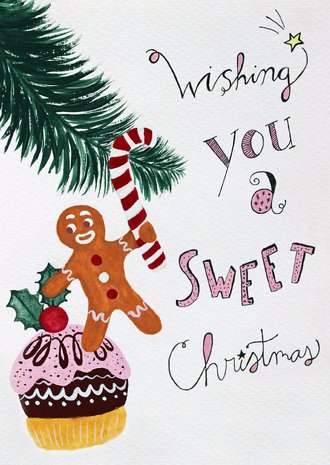 Wishing
you
a
SWEET
Christmas